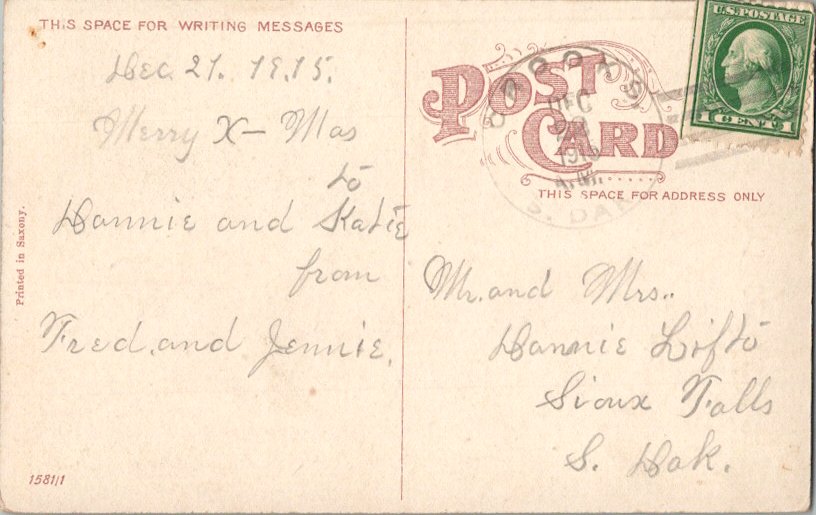 THIS SPACE FOR WRITING MESSAGES
Dec. 21. 1915.
Merry X-Mas
to
Dannie and Katie
from
Fred. and Jennie.
Printed in Saxony.
15811/1
POST
CARD
THIS SPACE FOR ADDRESS ONLY
U.S. POSTAGE
1 CENT 1
DEC
1915
A.M.
S. DAK
Mr. and Mrs..
Dannie Lifto
Sioux Falls
S. Dak.